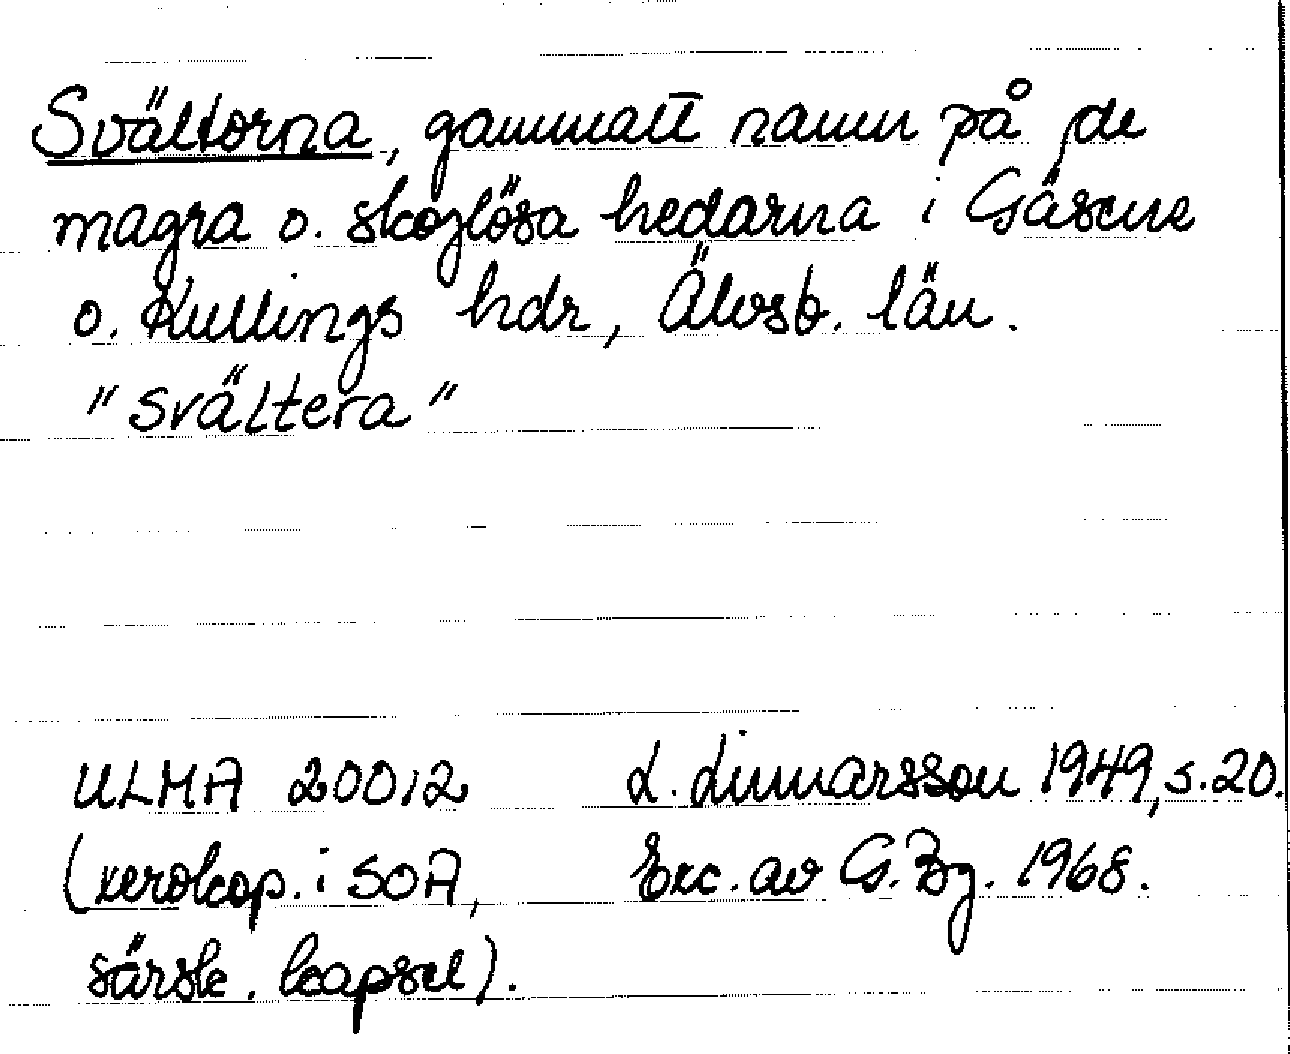 Svältorna, gammalt namn på de
magra o. skoglösa hedarna i Gäsene
o. Kullings hdr, Älvsb. län.
"svältera"
ULMA 20012 L. Linnarsson 1949, s. 20.
(xerokop. i SOA, Exc. av G. Bg. 1968.
särsk. kapsel).